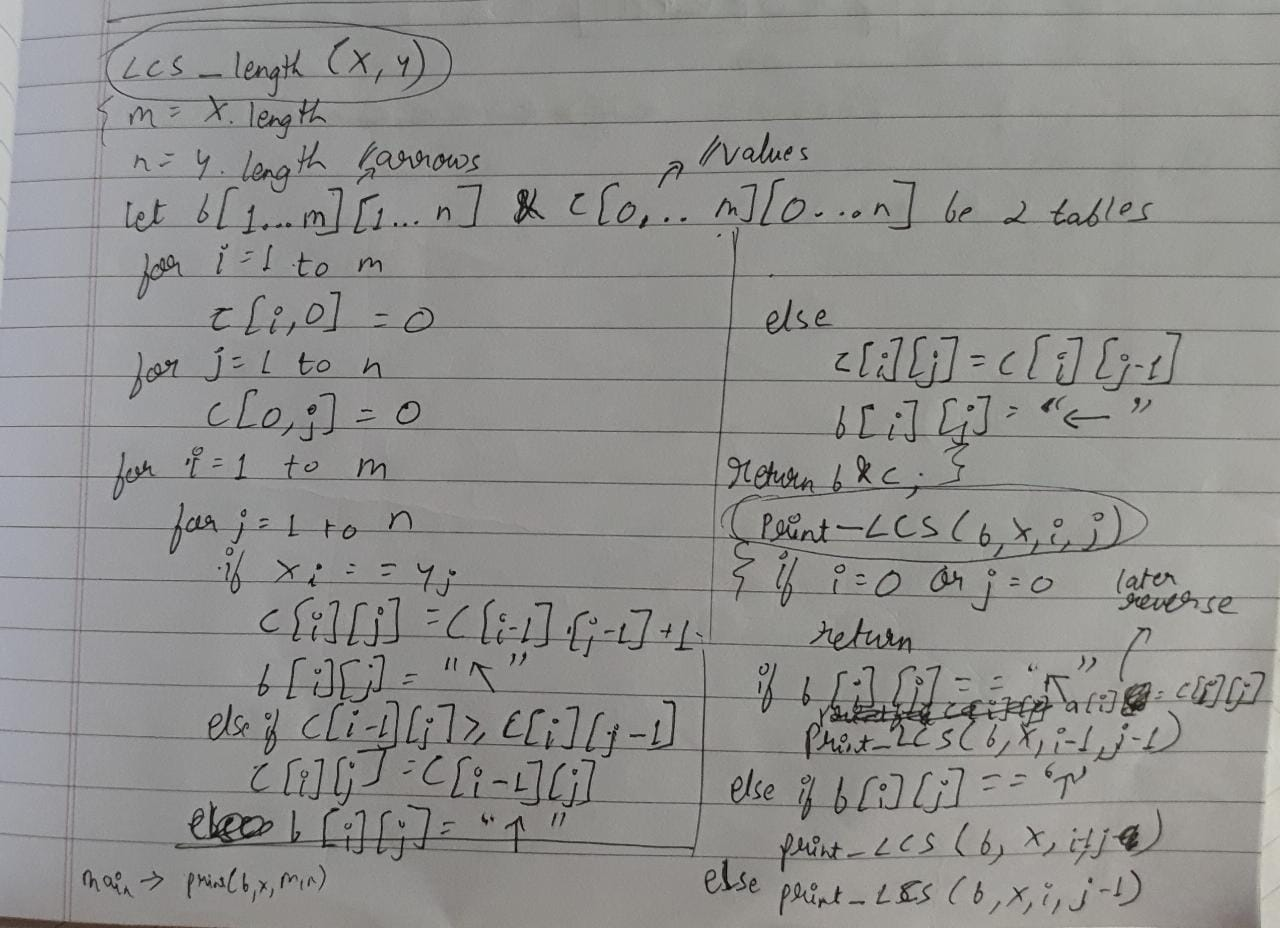 LCS_length (X, Y)
{ m = X. length
n = Y. length //arrows //values
let b[1...m][1...n] & c[0,.. m][0...n] be 2 tables
for i=1 to m
c[i,0] = 0
for j=1 to n
c[0,j] = 0
for i=1 to m
for j=1 to n
if xi == yj
c[i][j] = c[i-1].[j-1]+1
b[i][j] = "↖"
else if c[i-1][j] ≥ c[i][j-1]
c[i][j] = c[i-1][j]
b[i][j] = "↑"
main → print(b,x,m,n)
else
c[i][j] = c[i][j-1]
b[i][j] = "←"
return b & c; }
Print-LCS(b,X,i,j)
{ if i=0 or j=0
later
reverse
return
if b[i][j] == "↖" a[i] = c[i][j]
Print-LCS(b,X,i-1,j-1)
else if b[i][j] == "↑"
print-LCS (b, X,
else print-LCS (b,X,i,j-1)